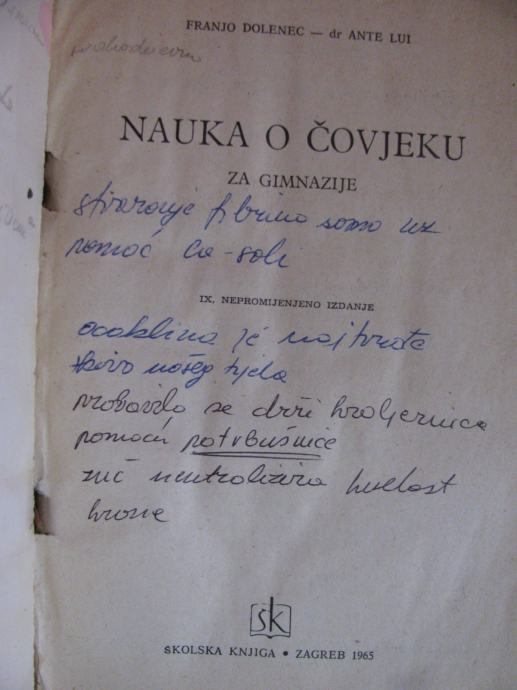 FRANJO DOLENEC — dr ANTE LUI
NAUKA O ČOVJEKU
ZA GIMNAZIJE
stvaranje fibrina samo uz
pomoć Ca-soli
IX, NEPROMIJENJENO IZDANJE
ocaklina je najtvrđe
tkivo našeg tijela
probavilo se drži kralježnica
pomoću potrbušnice
žuč neutralizira kiselost
hrane
šk
ŠKOLSKA KNJIGA • ZAGREB 1965